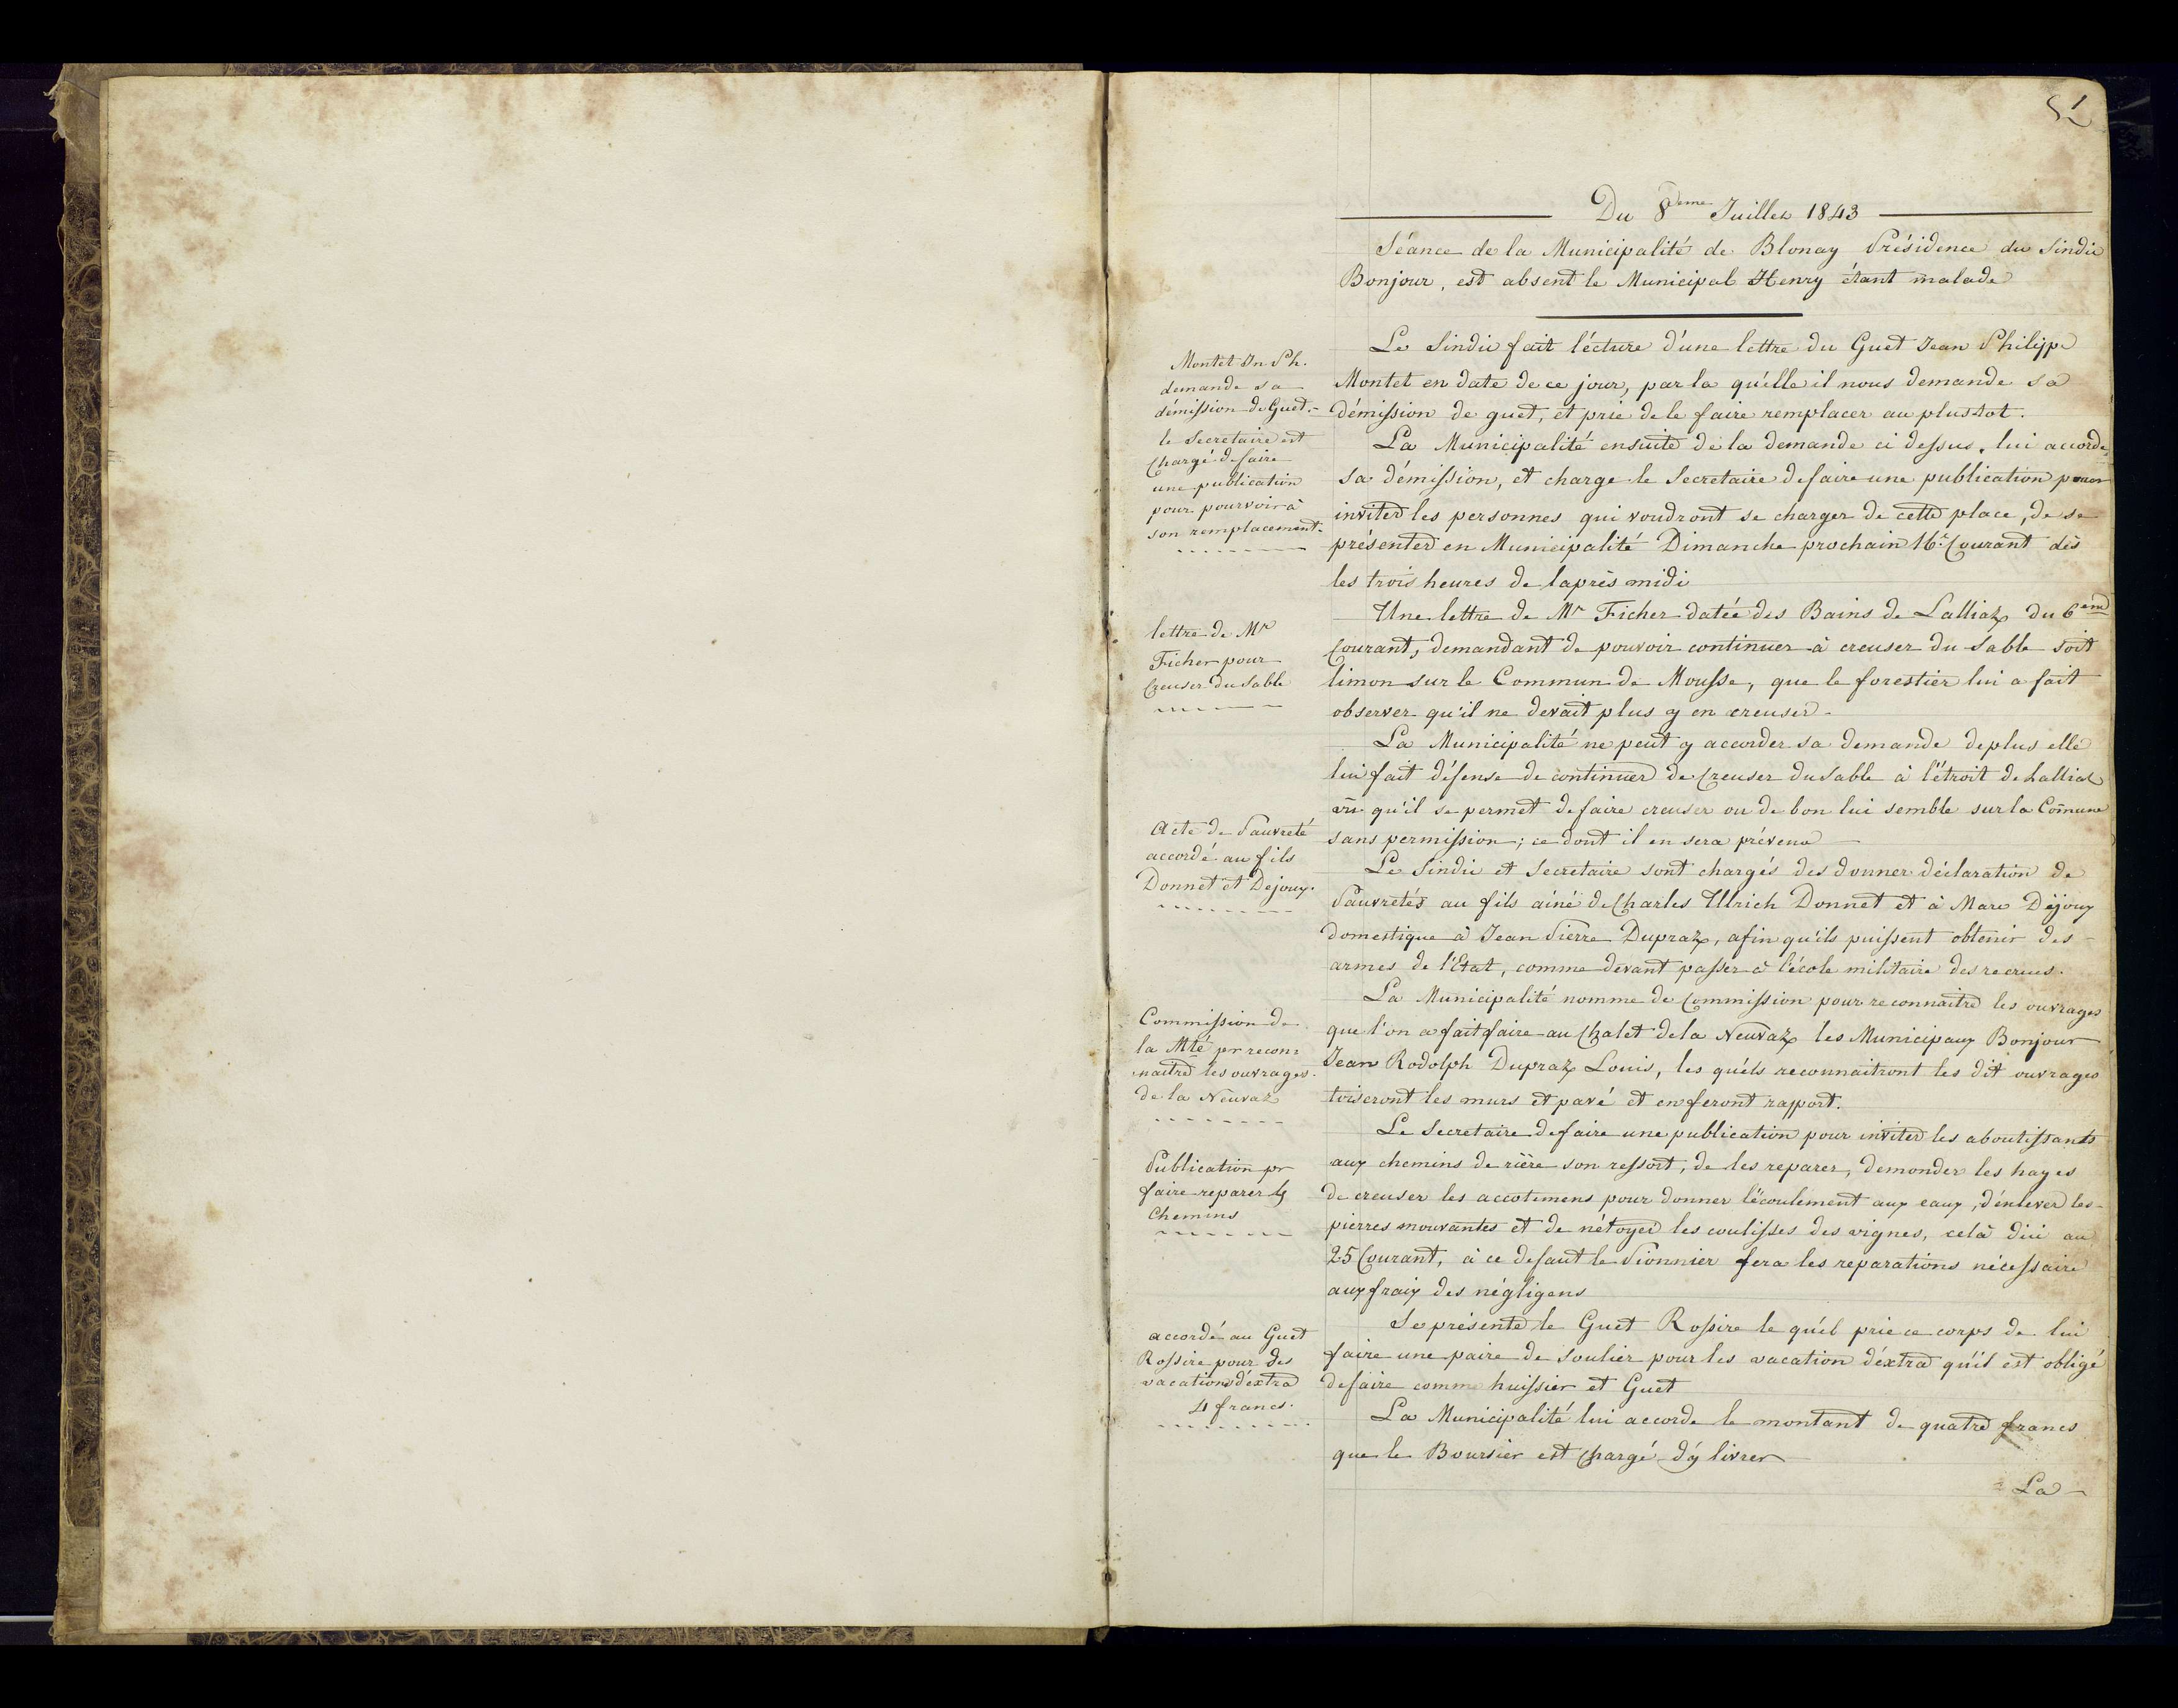 1
Du 8eme Juillet 1843
Séance de la Municipalité de Blonay Présidence du Sindic
Bonjour, est absent le Municipal Henry étant malade
Montet Jn Ph.
demande sa
démission de Guet.-
le Secretaire est
Chargé de faire
une publication
pour pourvoir à
son remplacement.
Le Sindic fait lécture d'une lettre du Guet Jean Philippe
Montet en date de ce jour, par la qu'élle il nous demande sa
démission de guet, et prie de le faire remplacer au plustot.
La Municipalité ensuite de la demande ci dessus, lui accorde
sa démission, et charge le Secretaire de faire une publication pour
inviter les personnes qui voudront se charger de cette place, de se
présenter en Municipalité Dimanche prochain 16e Courant dès
les trois heures de l'après midi
lettre de Mr
Ficher pour
Creuser du Sable
Une lettre de Mr Ficher datée des Bains de Lalliaz du 6eme
Courant, demandant de pouvoir continuer à creuser du Sable soit
limon sur le Commun de Mousse, que le forestier lui a fait
observer qu'il ne devait plus y en creuser.
La Municipalité ne peut y accorder sa demande deplus elle
lui fait défense de continuer de Creuser du Sable à l'étroit de Lalliaz
vu qu'il se permet de faire creuser ou de bon lui semble sur la Comune
sans permission; ce dont il en sera prévenu
Acte de Pauvreté
accordé au fils
Donnet et Dejoux.
Le Sindic et Secretaire sont chargés des donner déclaration de
Pauvretés au fils ainé de Charles Ulrich Donnet et à Marc Déjoux
domestique à Jean Pierre Dupraz, afin qu'ils puissent obtenir des
armes de l'Etat, comme devant passer à l'école militaire des recrues.
Commission de
la Mté pr recon=
naitre les ouvrages
de la Neuvaz
La Municipalité nomme de Commission pour reconnaitre les ouvrages
que l'on a fait faire au Chalet de la Neuvaz les Municipaux Bonjour
Jean Rodolph Dupraz Louis, les quéls reconnaitront les dit ouvrages
toiseront les murs et pavé et en feront rapport.
Publication pr
faire reparer les
Chemins
Le Secretaire de faire une publication pour inviter les aboutissants
aux chemins de rière son ressort, de les reparer, démonder les hayes
de creuser les accotemens pour donner l'écoulement aux eaux, d'énlever les
pierres mouvantes et de nétoyer les coulisses des vignes, celà d'ici au
25 Courant, à ce defaut le Pionnier fera les reparations nécessaire
aux fraix des négligens
accordé au Guet
Rossire pour des
vacations d'éxtra
4 francs.
Se présente le Guet Rossire le quél prie ce corps de lui
faire une paire de Soulier pour les vacation d'éxtra qu'il est obligé
de faire comme huissier et Guet
La Municipalité lui accorde le montant de quatre francs
que le Boursier est Chargé d'y livrer
La